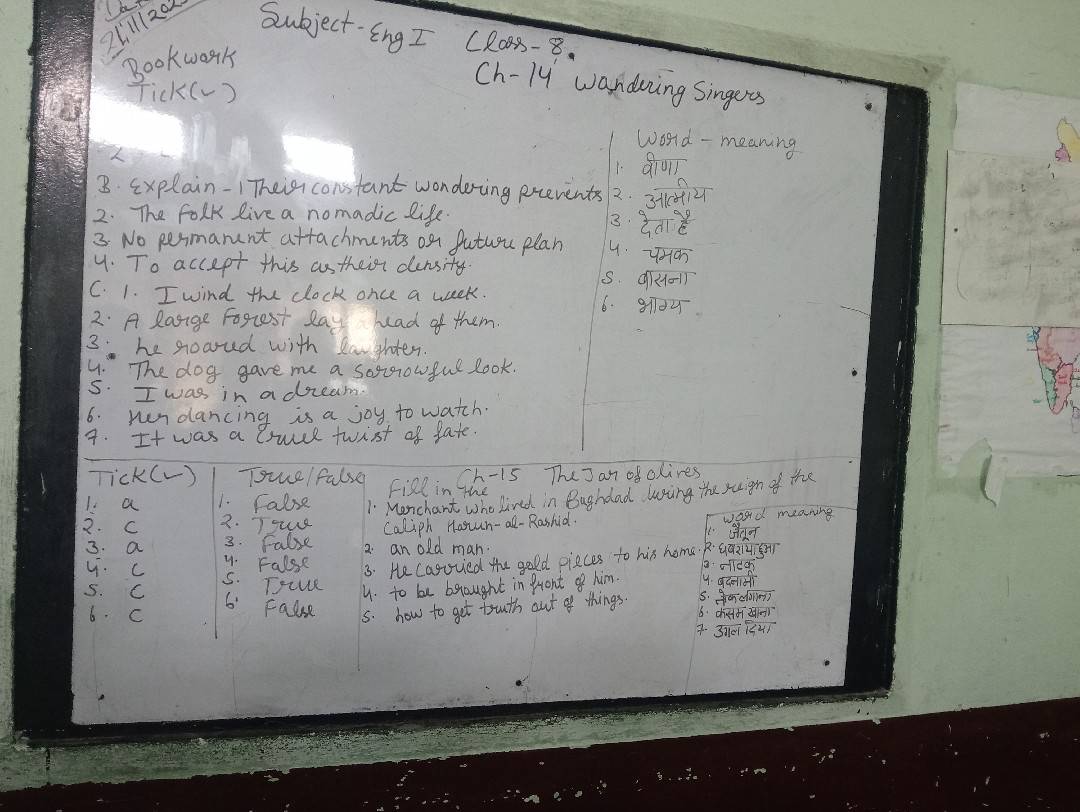 Subject - Eng I Class - 8.
Bookwork
Ch-14 Wandering Singers
Tick(✓)
B. Explain - 1 Their constant wondering prevents
2. The folk live a nomadic life.
3. No permanent attachments or future plan
4. To accept this as their density.
C. 1. I wind the clock once a week.
2. A large forest lay ahead of them.
3. he roared with laughter.
4. The dog gave me a sorrowful look.
5. I was in a dream.
6. Her dancing is a joy to watch.
7. It was a cruel twist of fate.
Word - meaning
1. वीणा
2. आत्मीय
3. देता है
4. चमक
5. वासना
6. भाग्य
Ch-15 The Jar of olives
Tick(✓)
1. a
2. C
3. a
4. C
5. C
6. C
True/False
1. False
2. True
3. False
4. False
5. True
6. False
Fill in the
1. Merchant who lived in Baghdad during the reign of the
Caliph Harun-al-Rashid.
2. an old man.
3. He carried the gold pieces to his home.
4. to be brought in front of him.
5. how to get truth out of things.
word meaning
1. जैतून
2. घबराया हुआ
3. नाटक
4. बदनामी
5. लगाना
6. कसम खाना
7. दिया